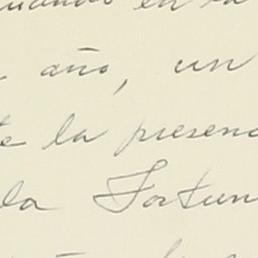 en la
año, un
la presenc
la Fortun